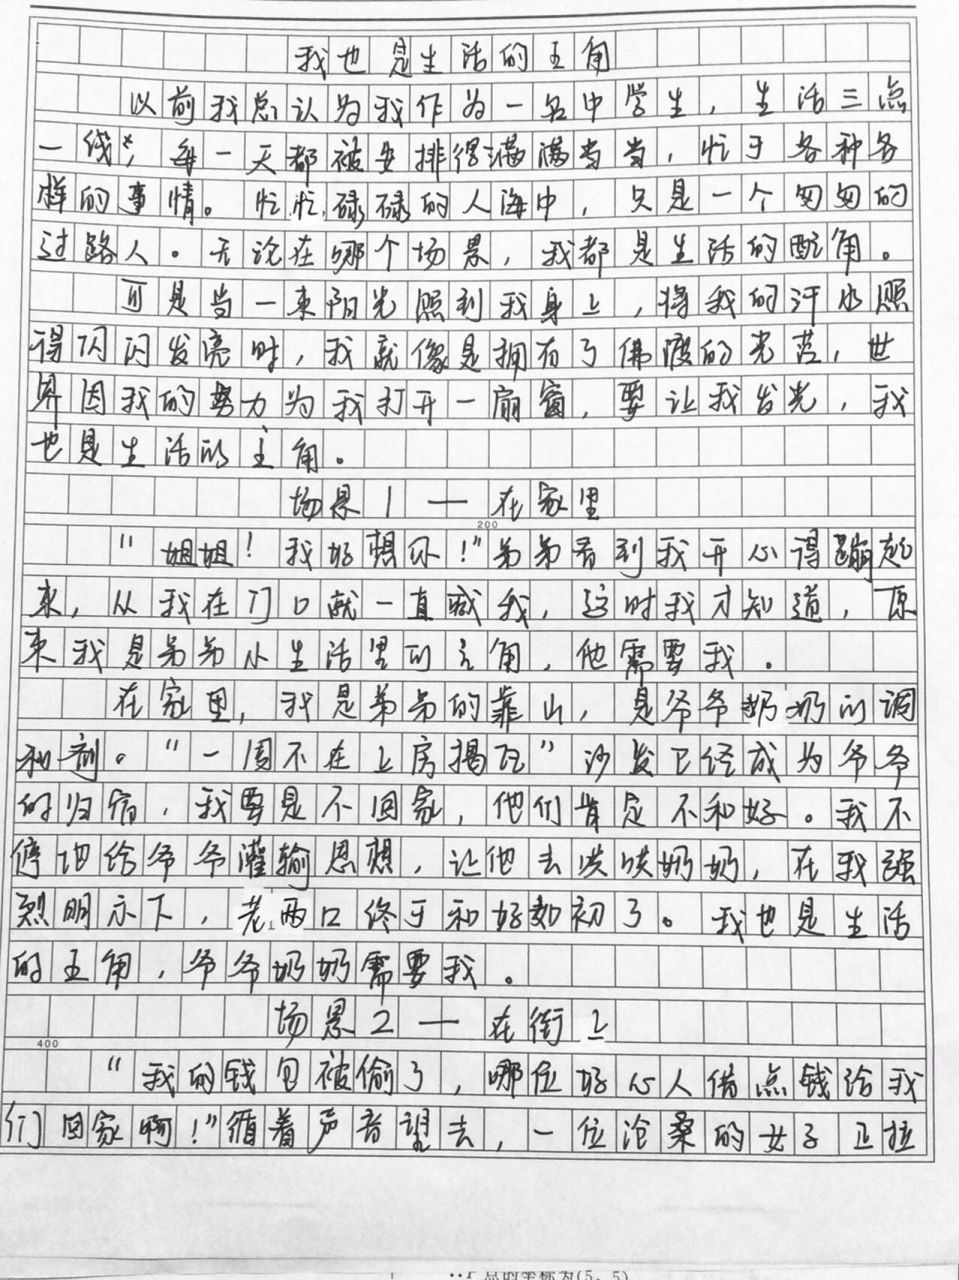 我也是生活的主角
以前我总认为我作为一名中学生，生活三点
一线，每一天都被安排得满满当当，忙于各种各
样的事情。忙忙碌碌的人海中，只是一个匆匆的
过路人。无论在哪个场景，我都是生活的配角。
可是当一束阳光照到我身上，将我的汗水照
得闪闪发亮时，我就像是拥有了佛渡的光芒，世
界因我的努力为我打开一扇窗，要让我发光，我
也是生活的主角。
场景1 — 在家里
200
"姐姐！我好想你！"弟弟看到我开心得蹦起
来，从我在门口就一直喊我，这时我才知道，原
来我是弟弟小生活里的主角，他需要我。
在家里，我是弟弟的靠山，是爷爷奶奶的调
和剂。"一周不在上房揭瓦"沙发已经成为爷爷
的归宿，我要是不回家，他们肯定不和好。我不
停地给爷爷灌输思想，让他去哄哄奶奶，在我强
烈明示下，老两口终于和好如初了。我也是生活
的主角，爷爷奶奶需要我。
场景2 — 在街上
400
"我的钱包被偷了，哪位好心人借点钱给我
们回家啊！"循着声音望去，一位沧桑的女子正拉
点的坐标为(5，5)